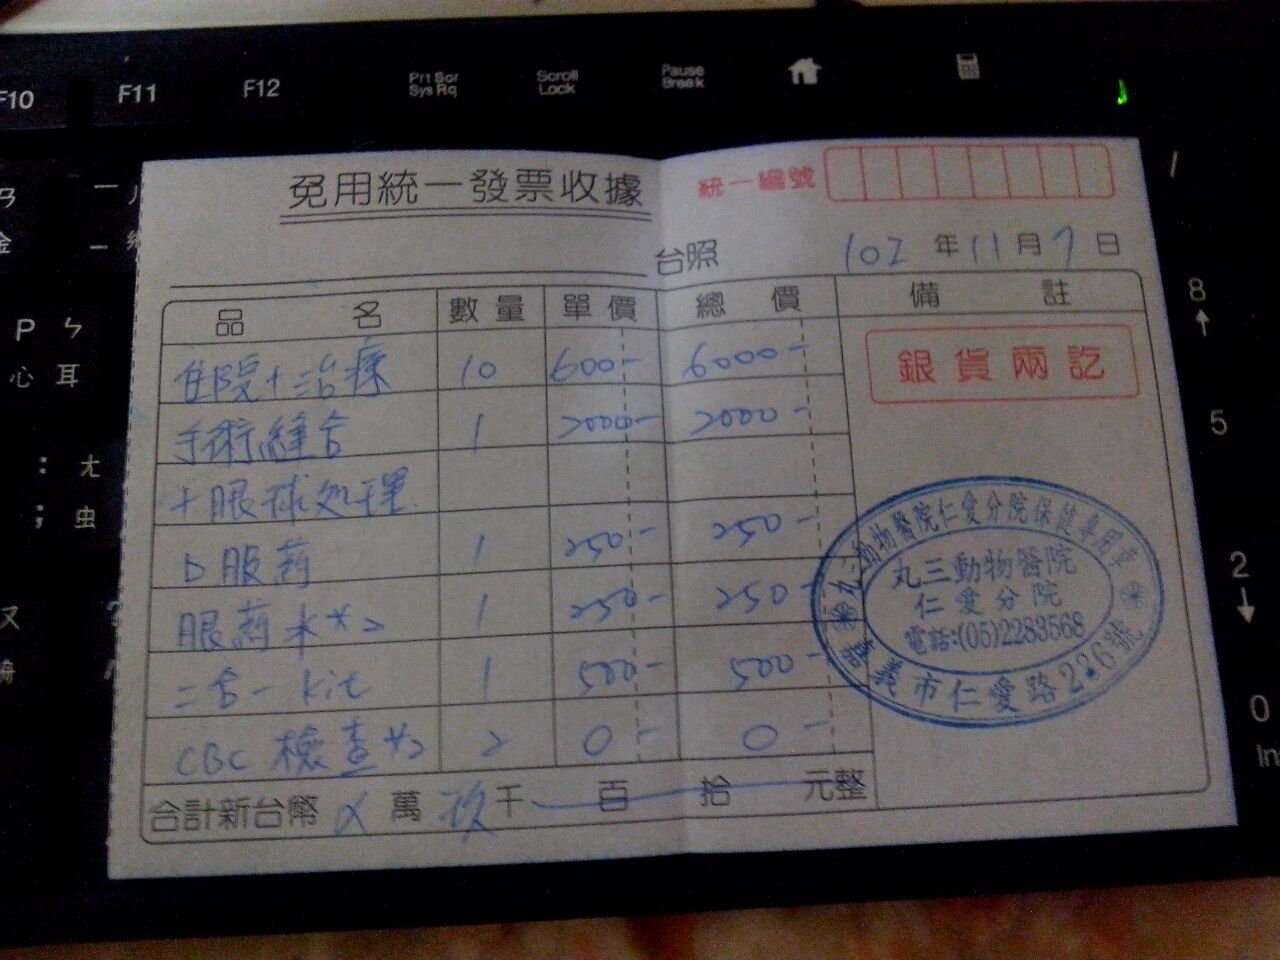 F10 F11 F12 Prt Scr Sys Rq Scroll Lock Pause Break
免用統一發票收據
統一編號
台照
102 年 11 月 7 日
品名 數量 單價 總價 備註
住院+治療 10 600- 6000-
銀貨兩訖
手術縫合 1 2000- 2000-
+眼球処理
口服葯 1 250- 250-
眼葯水*2 1 250- 250-
二合一 kit 1 500- 500-
CBC 檢查*2 2 0- 0-
合計新台幣 X 萬 玖 千 百 拾 元整
丸三動物醫院仁愛分院保健專用章
丸三動物醫院
仁愛分院
電話:(05)2283568
嘉義市仁愛路226號
P ㄣ
心 耳
: ㄤ
; 虫
又
8
5
2
0
In